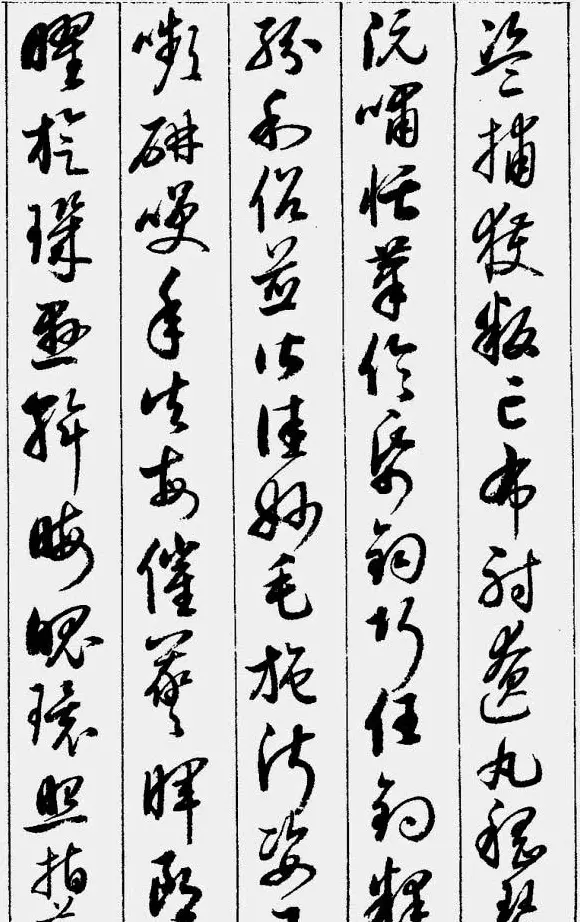 盗捕獲叛亡布射遼丸嵇琴
阮嘯恬筆倫紙鈞巧任釣釋
紛利俗並皆佳妙毛施淑姿工
嚬妍笑年矢每催羲暉朗
曜旋璣懸斡晦魄環照指薪